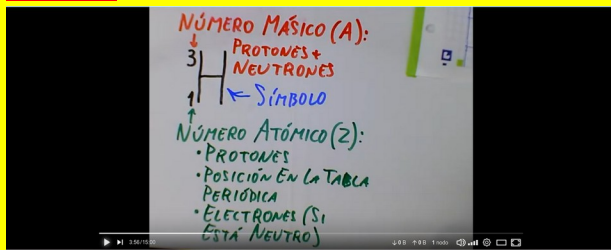 NÚMERO MÁSICO (A):
3 PROTONES +
H NEUTRONES
1 ← SÍMBOLO
NÚMERO ATÓMICO (Z):
• PROTONES
• POSICIÓN EN LA TABLA
PERIÓDICA
• ELECTRONES (SI
ESTÁ NEUTRO)
3:56/15:50
↓0 B ↑0 B 1 nodo